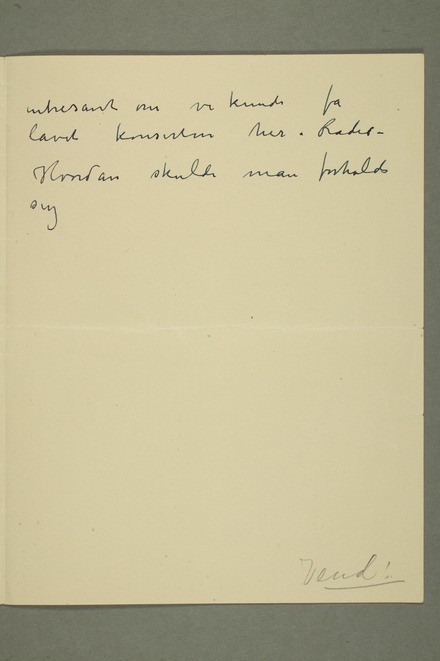 intresant om vi kunde fa
lavet konserten her i Radio-
Hvordan skulde man forholde
sig
Vend!